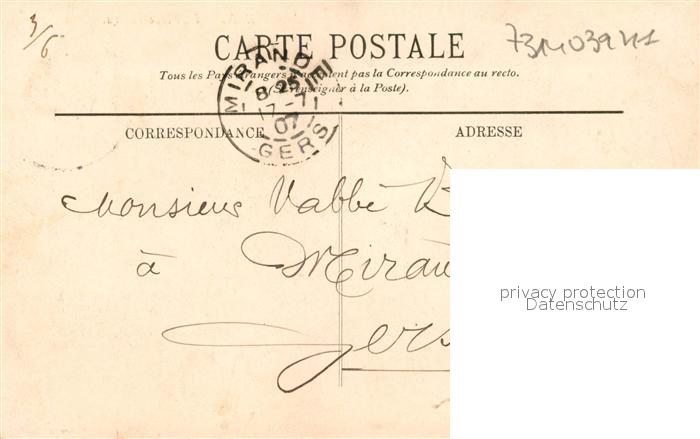 3/6
CARTE POSTALE
Tous les Pays étrangers n'acceptent pas la Correspondance au recto.
(Se renseigner à la Poste).
MIRANDE
8 25
17-7
07
GERS
CORRESPONDANCE
ADRESSE
Monsieur l'abbé
à
Gers
privacy protection
Datenschutz